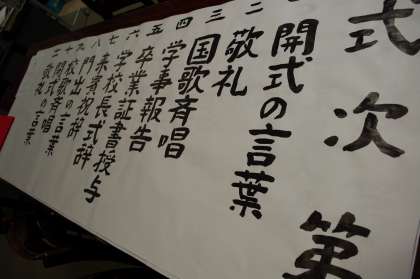 式次第
開式の言葉
二 敬礼
三 国歌斉唱
四 学事報告
五 卒業証書授与
六 学校長式辞
七 来賓祝辞
八 門出の言葉
九 校歌斉唱
十 閉式の言葉
敬礼